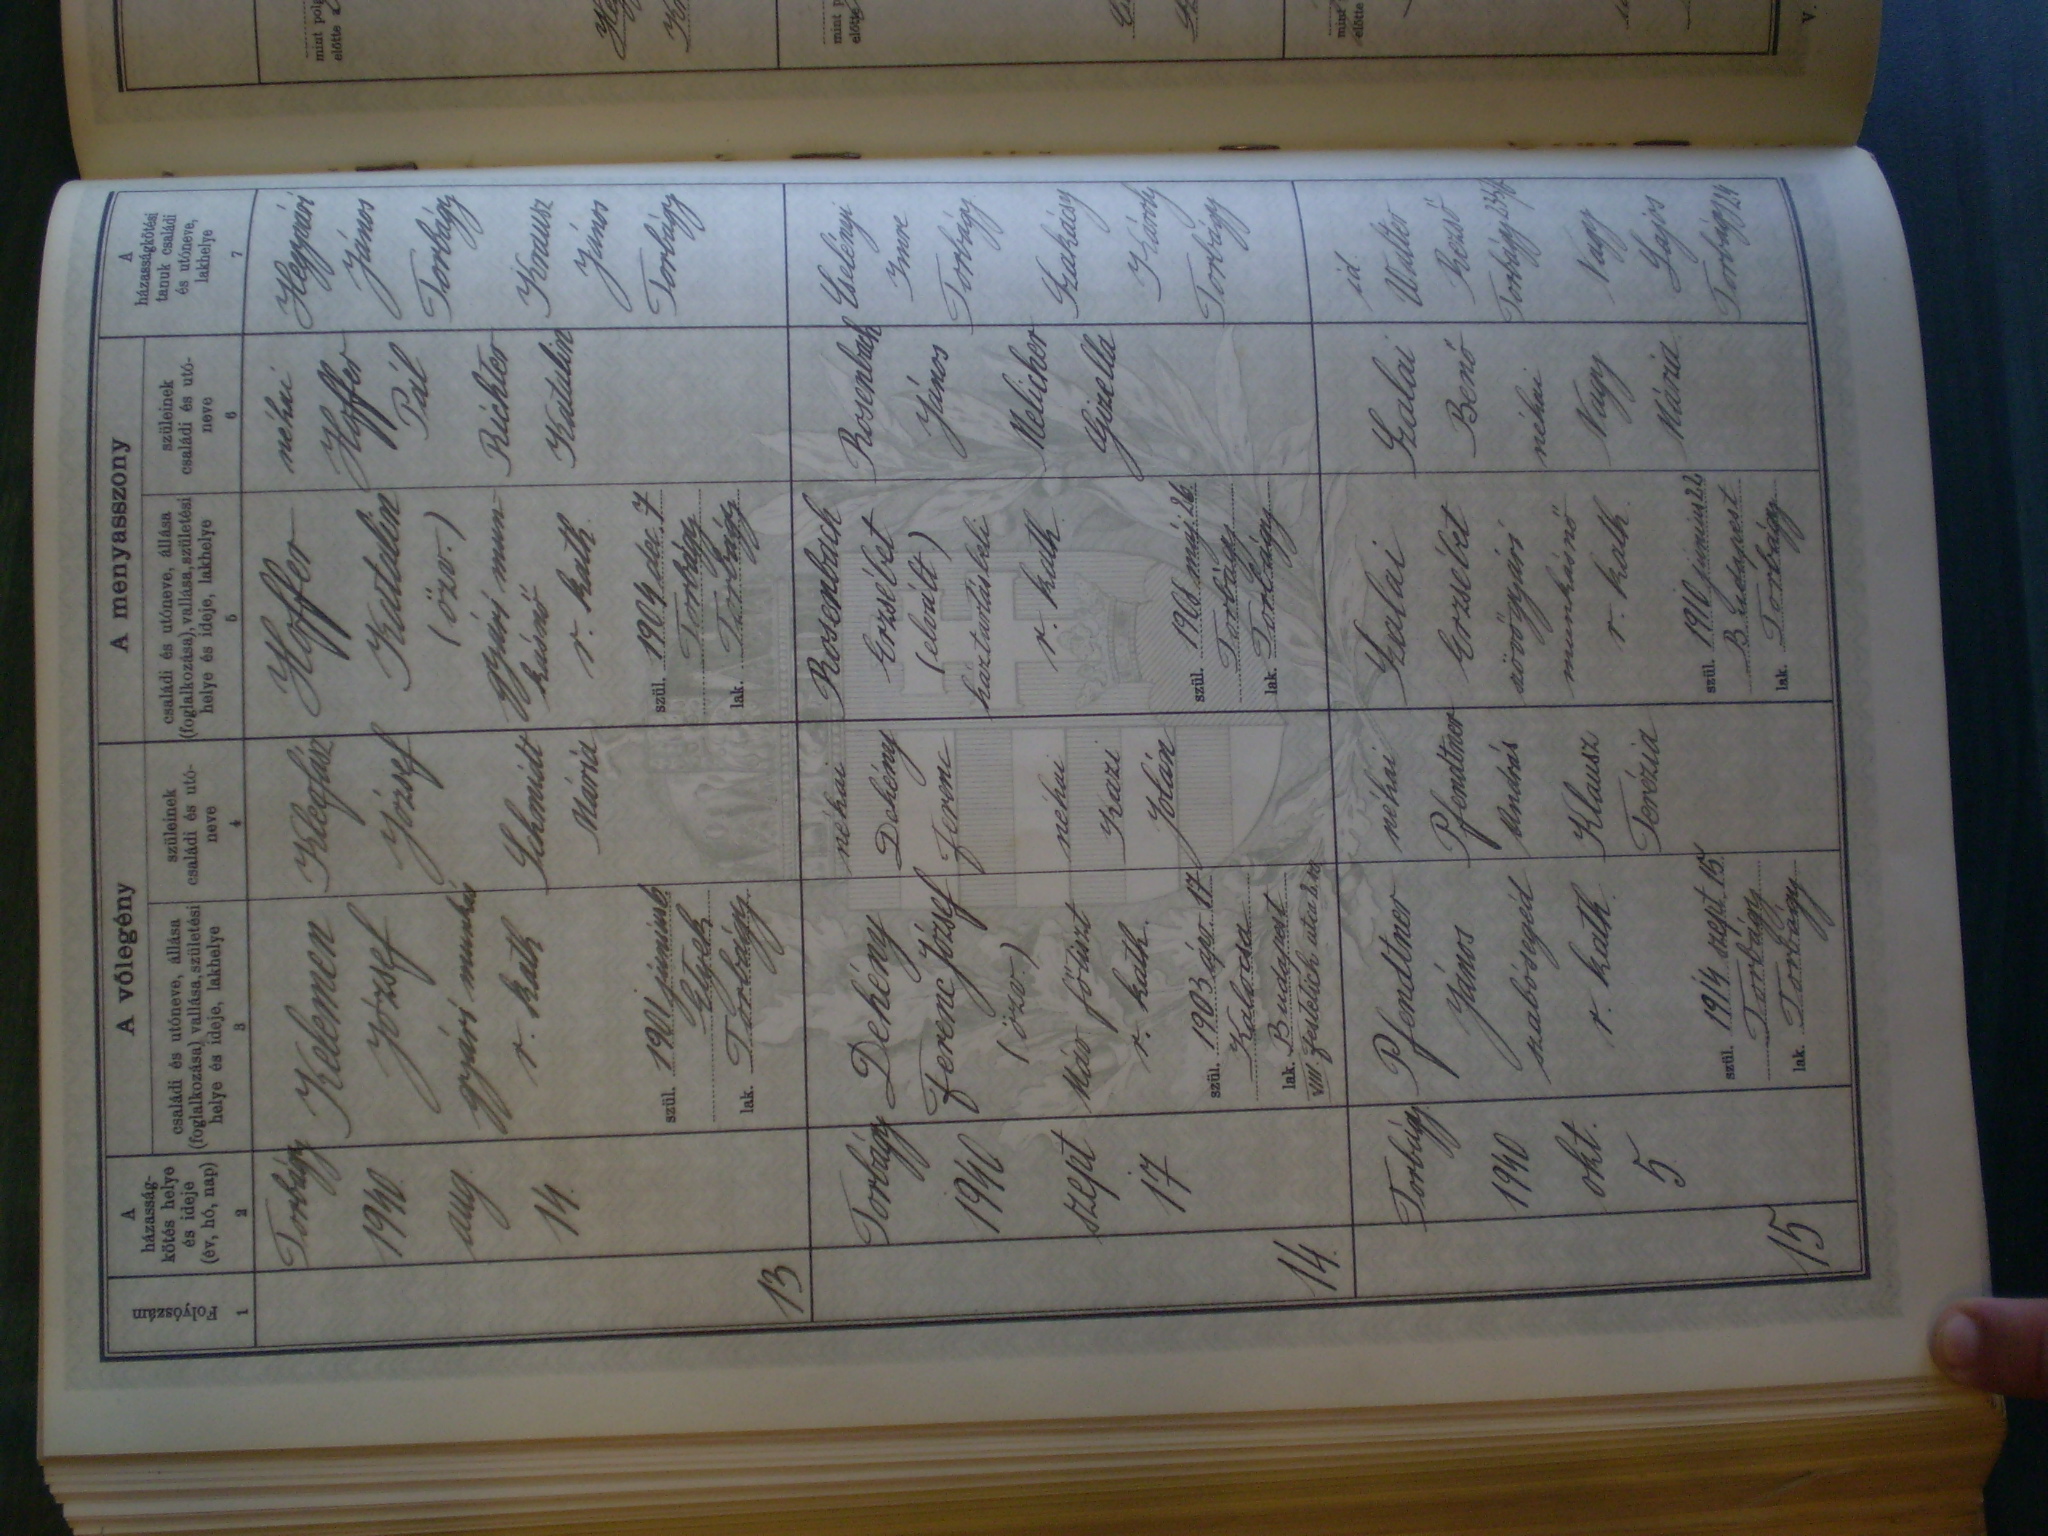 A vőlegény
A menyasszony
Folyószám
A
házasság-
kötés helye
és ideje
(év, hó, nap)
családi és utóneve, állása
(foglalkozása) vallása, születési
helye és ideje, lakhelye
szüleinek
családi és utó-
neve
családi és utóneve, állása
(foglalkozása), vallása, születési
helye és ideje, lakhelye
szüleinek
családi és utó-
neve
A
házasságkötési
tanuk családi
és utóneve,
lakhelye
1
2
3
4
5
6
7
13
Torbágy
1940.
aug.
14.
Kelemen
József
gyári munkás
r. kath.
szül. 1901 június 6.
Etyek
lak. Torbágy.
József
Schmidt
Mária
Hoffer
Katalin
(özv.)
gyári mun-
kásnő
r. kath.
szül. 1904. dec. 7
Torbágy
lak. Torbágy
néhai
Hoffer
Pál
Richter
Katalin
Hegyári
János
Torbágy
Krausz
János
Torbágy
14.
Torbágy
1940
szept
17
Dehény
Ferenc József
(özv.)
Máv fűtiszt
r. kath.
szül. 1903 ápr. 17
Kalocsa
lak. Budapest
VIII. Festetich utca
néhai
Dehény
Ferenc
néhai
Kazi
Jolán
Rosenbach
Erzsébet
(elvált)
háztartásbeli
r. kath.
szül. 1906 máj. 26.
Torbágy
lak. Torbágy
Rosenbach
János
Melicher
Gizella
Cselényi
Imre
Torbágy
Szakácsy
Károly
Torbágy
15
Torbágy.
1940
okt.
5.
Pfendtner
János
szabósegéd
r. kath.
szül. 1914. szept. 15.
Torbágy
lak. Torbágy
néhai
Pfendtner
András
Klausz
Terézia
Szalai
Erzsébet
szövőgyári
munkásnő
r. kath.
szül. 1910 június 22
Budapest
lak. Torbágy
Szalai
Benő
néhai
Nagy
Mária
id.
Walter
Rezső
Torbágy
Nagy
Lajos
Torbágy 124
mint
előtte
mint p
előtte
mint
előtte
V.